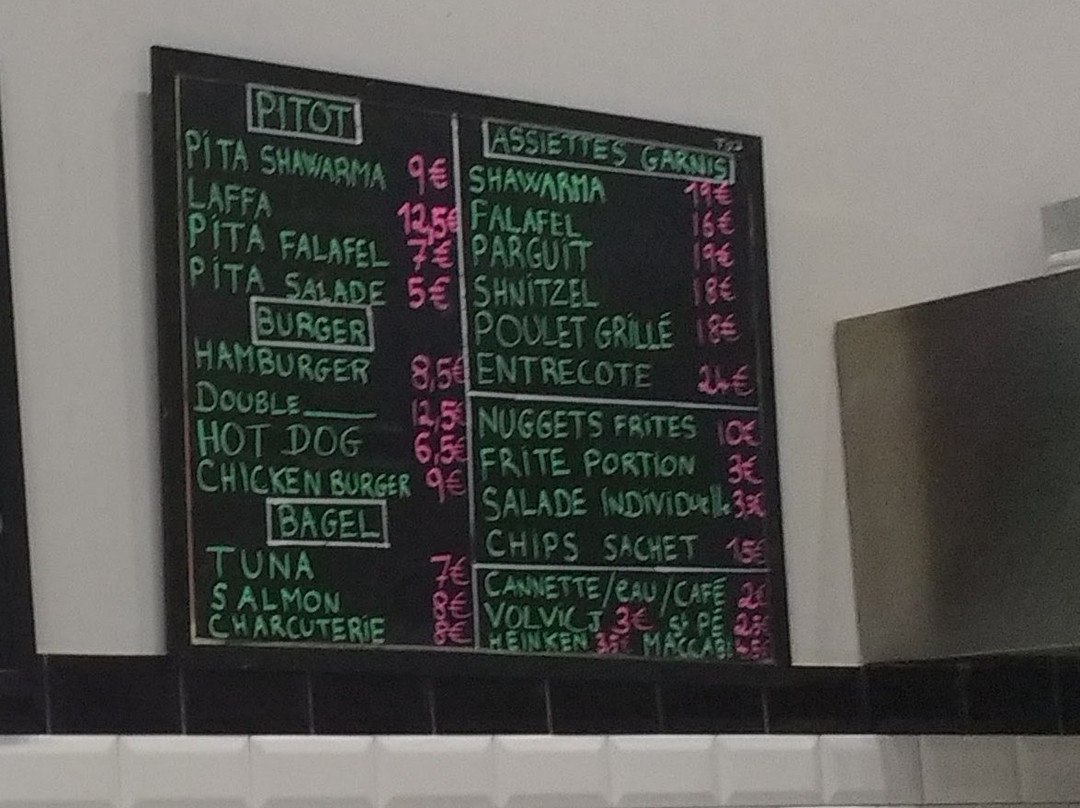 PITOT
PITA SHAWARMA 9€
LAFFA 12,5€
PITA FALAFEL 7€
PITA SALADE 5€
BURGER
HAMBURGER 8,5€
DOUBLE 12,5€
HOT DOG 6,5€
CHICKEN BURGER 9€
BAGEL
TUNA 7€
SALMON 8€
CHARCUTERIE 8€
ASSIETTES GARNIS
SHAWARMA 19€
FALAFEL 16€
PARGUIT 19€
SHNITZEL 18€
POULET GRILLÉ 18€
ENTRECOTE 24€
NUGGETS FRITES 10€
FRITE PORTION 3€
SALADE INDIVIDUelle
CHIPS SACHET
CANNETTE/eAU/CAFÉ 2€
VOLVIC J 3€ St PÉ
HEINKEN MACCABI